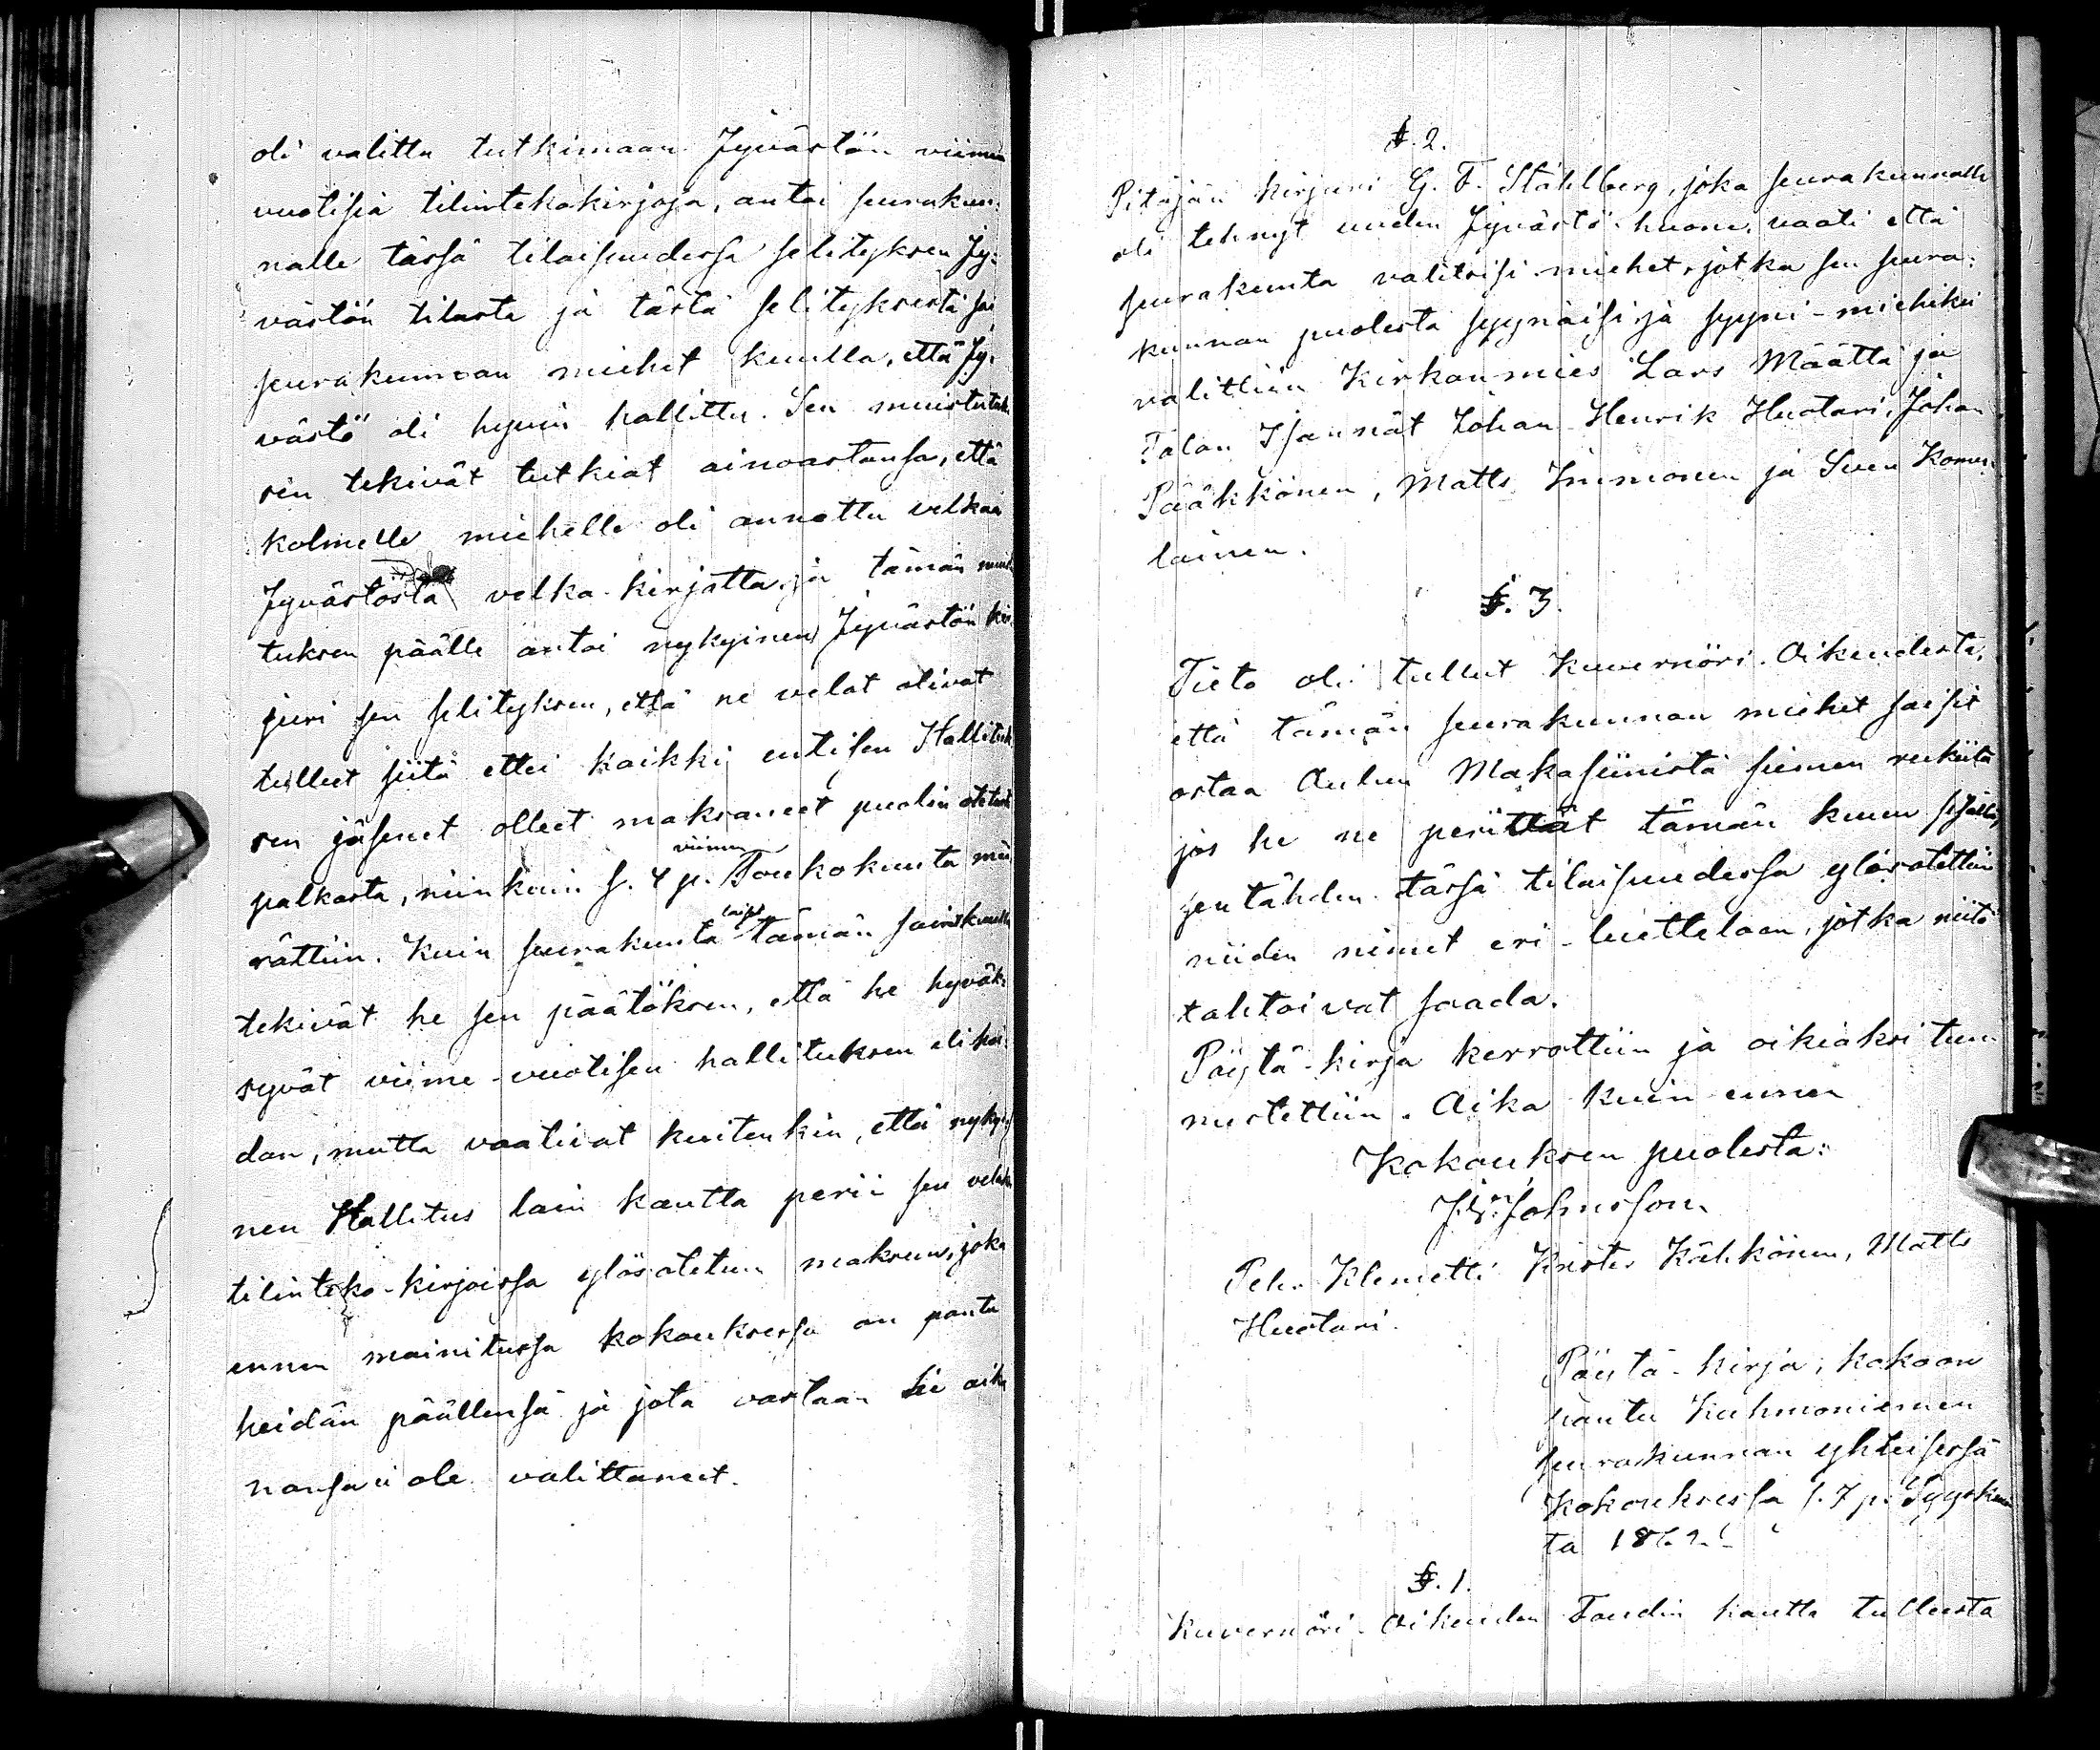 oli valittu tutkimaan Jyvästön viimen
vuotisia tilintekokirjoja, antoi seurakun:
nalle tässä tilaisuudessa selityksen Jy:
västön tilasta ja tästä selityksestä sai
seurakunnan miehet kuulla, että Jy:
västö oli hyvin hallittu. Sen muistutuk
sen tekivät tutkiat ainoastansa, että
kolmelle miehelle oli annettu velkaa
Jyvästöstä velka-kirjatta, ja tämän muis
tuksen päälle antoi nykyinen Jyvästön kir
juri sen selityksen, että ne velat olivat
tulleet siitä ettei kaikki entisen Hallituk
sen jäsenet olleet maksaneet puolin otetusta
palkasta, niinkuin s. 4 p. viimen Toukokuuta mää
rättiin. Kuin seurakunta tämän sai kuulla
tekivät he sen päätöksen, että he hyväk:
syvät viime-vuotisen hallituksen eli hoi:
don, mutta vaativat kuitenkin, että nykyi
nen Hallitus lain kautta perii sen
tilinteko-kirjoissa ylösotetun maksun, joka
ennen mainitussa kokouksessa on pantu
heidän päällensä ja jota vastaan he aika
nansa ei ole valittaneet.
§. 2.
Pitäjän kirjuri G. F. Ståhlberg, joka seurakunnalle
oli tehnyt uuden Jyvästö-huone, vaati että
seurakunta valitsisi miehet, jotka sen seura:
kunnan puolesta syynäisi ja syyni-miehiksi
valittiin Kirkonmies Lars Määttä ja
Talon Isännät Johan Henrik Huotari, Johan
Pääkkönen, Matts Immonen ja Sven Komu
lainen.
§. 3.
Tieto oli tullut Kuvernöri-Oikeudesta,
että tämän seurakunnan miehet saisit
ostaa Oulun Makasiinistä siemen rukiita
jos he ne perittät tämän kuun sisällä,
jen tähden tässä tilaisuudessa ylösotettiin
niiden nimet eri-luetteloon, jotka niitä
tahtoivat saada.
Pöytä-kirja kerrottiin ja oikiaksi tun
nustettiin. Aika kuin ennen
Kokouksen puolesta:
Johnsson.
Pehr Klemetti Krister Kähkönen, Matts
Huotari.
Pöytä-kirja, kokoon
pantu Kuhmoniemen
seurakunnan yhteisessä
Kokouksessa s. 7 p. Syyskuu
ta 1862.
§. 1.
Kuvernöri-Oikeuden Foudin kautta tulleesta